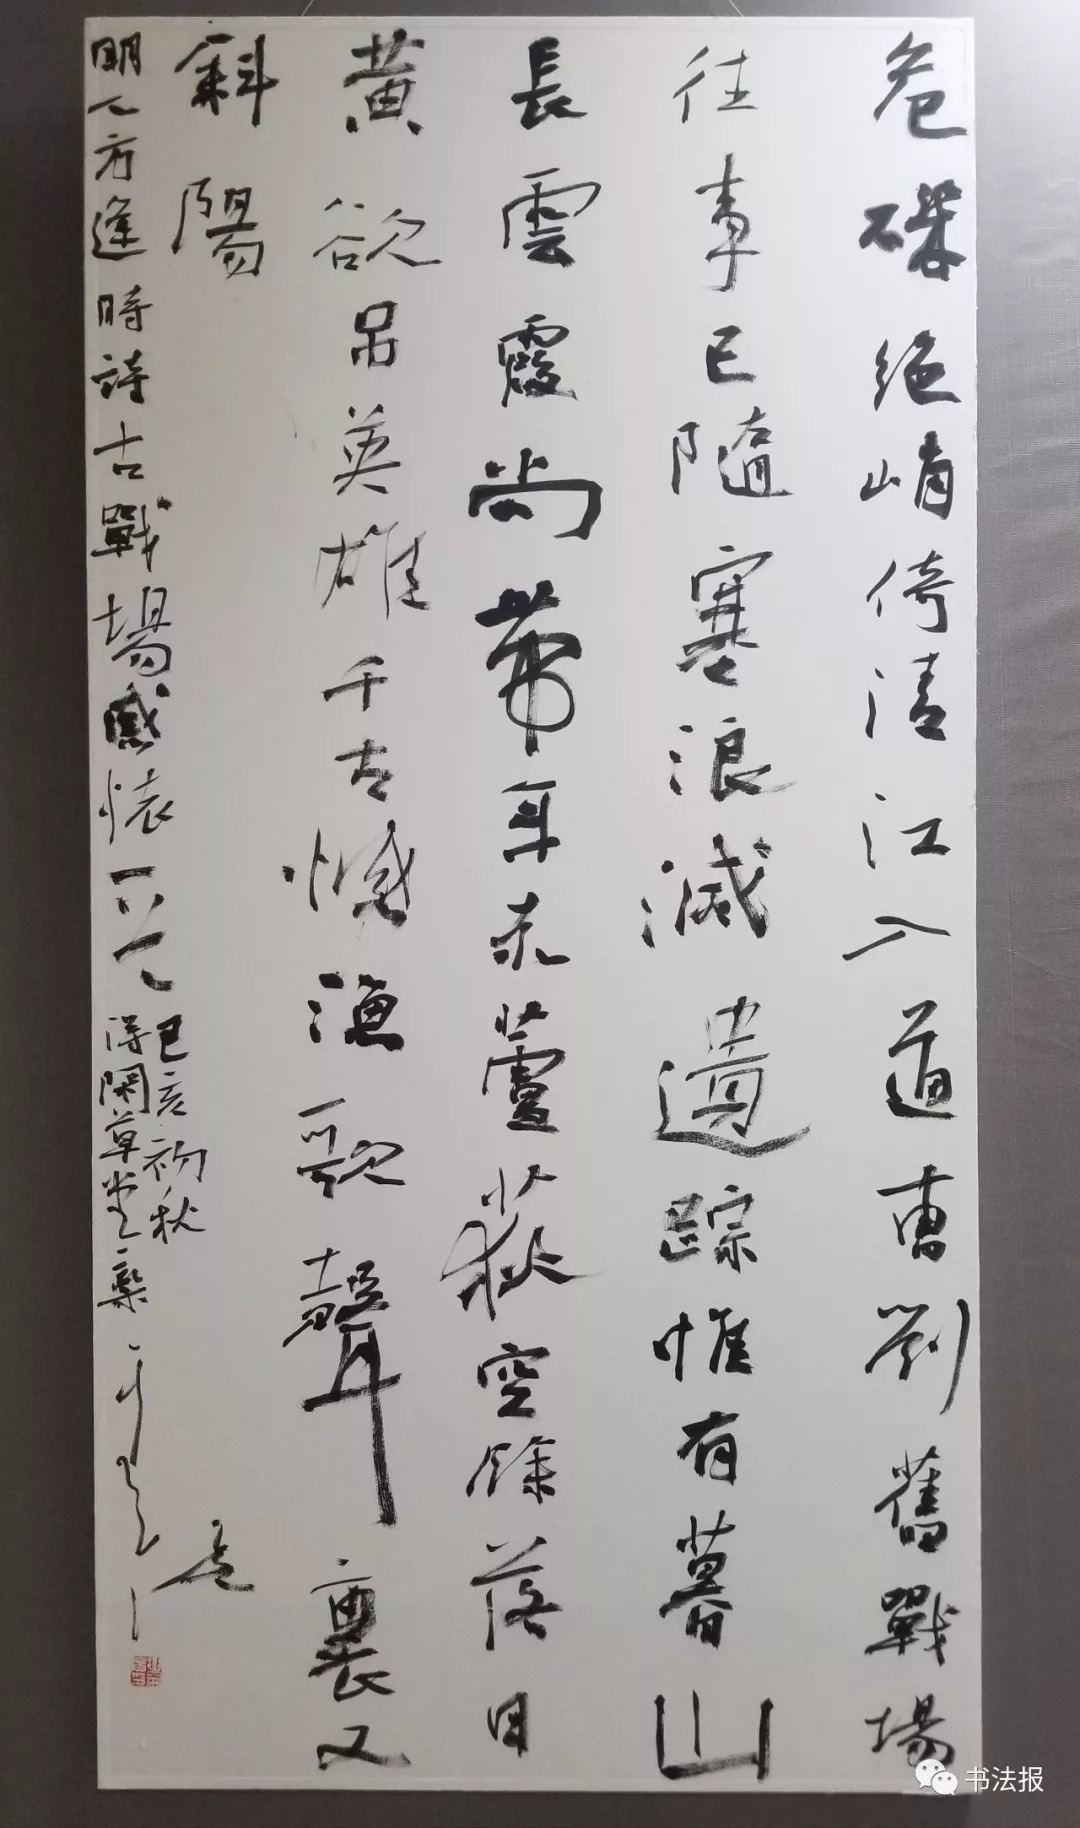 危磯絕峭倚清江入道曹劉舊戰場
往事已隨寒浪減遺踪惟有暮山
長雲霞尚帶年赤蘆荻空餘落日
黃欲吊英雄千古憾漁歌聲裏又
斜陽
明人方逢時詩古戰場感懷
己亥初秋
得閑草堂
書法报